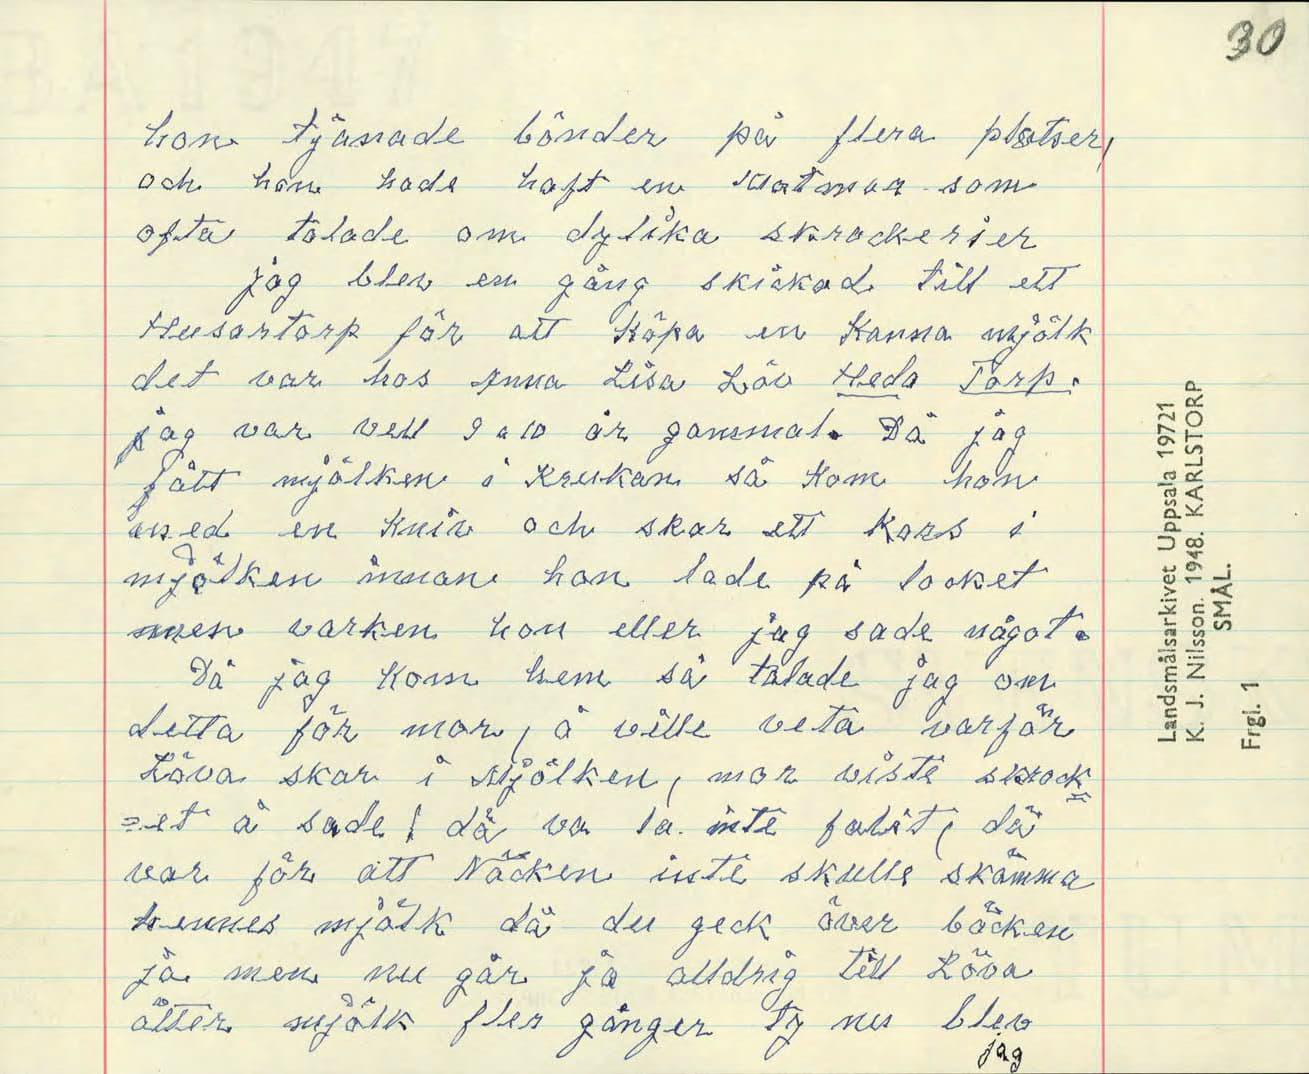 30
hon tjänade bönder på flera platser,
och hon hade haft en Matmor som
ofta talade om dylika skrockerier
jag blev en gång skickad till ett
Husartorp för att Köpa en Kanna mjölk
det var hos Anna Lisa Löv Heda Torp.
jag var vell 9 a 10 år gammal. Då jag
fått mjölken i Krukan så Kom hon
med en Kniv och skar ett Kors i
mjölken innan hon lade på locket
men varken hon eller jag sade något.
Då jag Kom hem så talade jag om
detta för mor, å ville veta varför
Löva skar i Mjölken, mor viste skrock
=et å sade! dä va la inte falit, dä
var för att Näcken inte skulle skämma
hennes mjölk då du geck över bäcken
jä men nu går ja alldrig till Löva
ätter mjölk fler gånger ty nu blev
jag
Landsmålsarkivet Uppsala 19721
K. J. Nilsson. 1948. KARLSTORP
SMÅL.
Frgl. 1